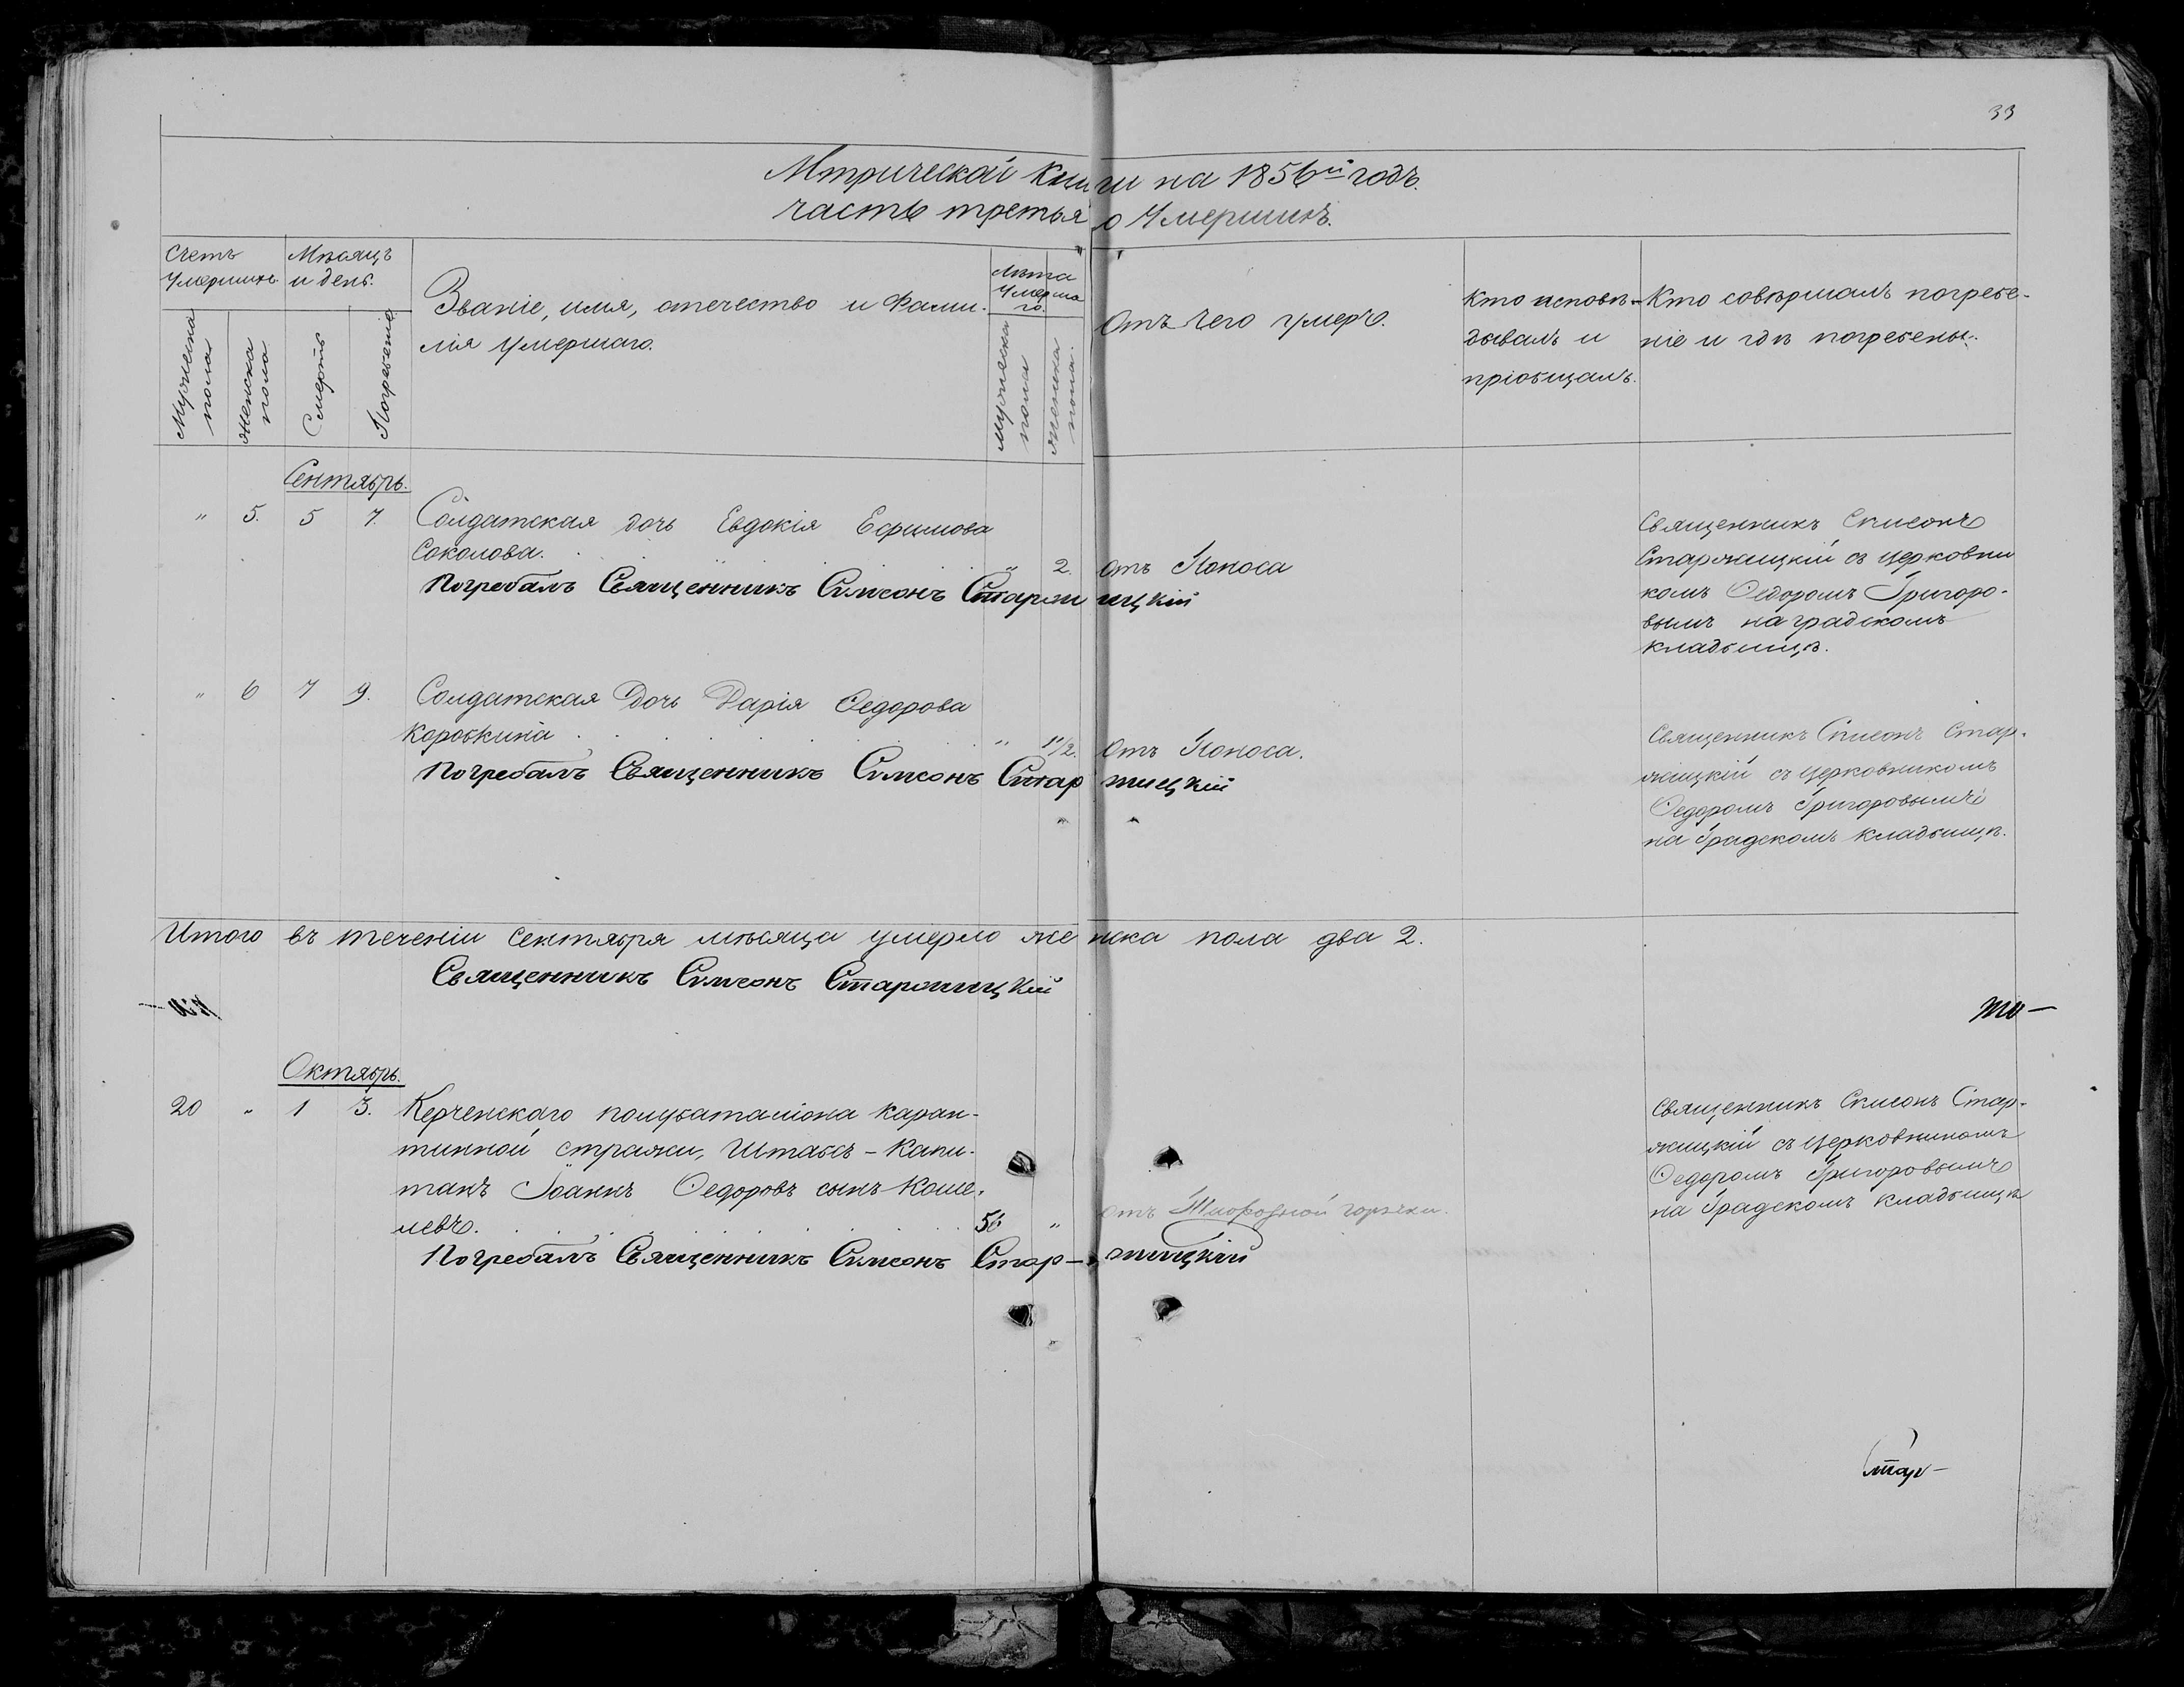 33
Мтрической Книги на 1856й годъ.
часть третья о Умершихъ.
Счетъ Умершихъ
Мѣсяцъ и день.
Мужеска пола
Женска пола
Смерть
Погребенія
Званіе, имя, отечество и Фами-
лія умершаго.
Лѣта Умерша го.
Мужеска пола
Женска пола.
Отъ чего умеръ.
Кто исповѣ-
дывалъ и
пріобщалъ.
Кто совѣршалъ погребе-
ніе и гдѣ погребены.
Сентябрь.
" 5. 5 7. Солдатская дочь Евдокія Ефимова
Соколова. " 2. отъ Поноса
Погребалъ Священникъ Симеонъ Старжицкій
Священникъ Симеонъ
Старжицкій съ церковни
комъ Ѳедоромъ Григоро-
вымъ на градскомъ
кладбищѣ.
" 6 7 9. Солдатская Дочь Дарія Ѳедорова
Коробкина " 1 1/2. Отъ Поноса.
Погребалъ Священникъ Симеонъ Старжицкій
Священникъ Симеонъ Стар-
жицкій съ церковникомъ
Ѳедоромъ Григоровымъ
на Градскомъ кладбищѣ.
Итого въ теченіи Сентября мѣсяца умерло женска пола два 2.
Священникъ Симеонъ Старжицкій
Октябрь.
20 " 1 3. Керченскаго полубаталіона каран-
тинной стражи, Штабсъ-Капи-
танъ Іоаннъ Ѳедоровъ сынъ Коше-
левъ. 56 " отъ горячки.
Погребалъ Священникъ Симеонъ Стар-жицкій
Священникъ Симеонъ Стар-
жицкій съ церковникомъ
Ѳедоромъ Григоровымъ
на Градскомъ кладбищѣ
Стар-